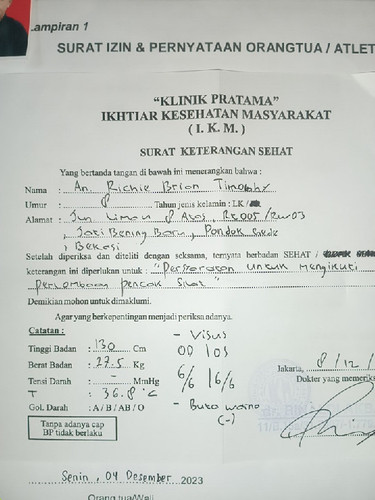 Lampiran 1
SURAT IZIN & PERNYATAAN ORANGTUA / ATLET
"KLINIK PRATAMA"
IKHTIAR KESEHATAN MASYARAKAT
( I. K. M. )
SURAT KETERANGAN SEHAT
Yang bertanda tangan di bawah ini menerangkan bahwa :
Nama : An. Richie Brian Timothy
Umur : 8 Tahun jenis kelamin : LK /
Alamat : Jln Limau 8 Atas, Rt005/Rw03
, Jati Bening Baru, Pondok Gede
, Bekasi
Setelah diperiksa dan diteliti dengan seksama, ternyata berbadan SEHAT /
keterangan ini diperlukan untuk : "Persyaratan untuk mengikuti
perlombaan pencak silat"
Demikian mohon untuk dimaklumi.
Agar yang berkepentingan menjadi periksa adanya.
Catatan :
Tinggi Badan : 130 Cm
Berat Badan : 27.5 Kg
Tensi Darah : - MmHg
T : 36.8 °C
Gol. Darah : A / B / AB / O
- Visus
OD | OS
6/6 | 6/6
- Buta warna
(-)
Jakarta, 8 / 12 /
Dokter yang memeriks
Tanpa adanya cap
BP tidak berlaku
Senin, 04 Desember 2023
Orangtua/Wali